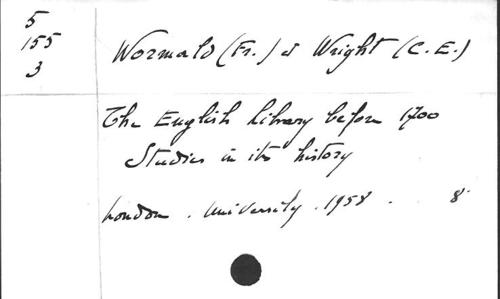 5
155
3
Wormald (Fr.) & Wright (C. E.)
The English Library before 1700
Studies in its history
London . University . 1958 . 8°